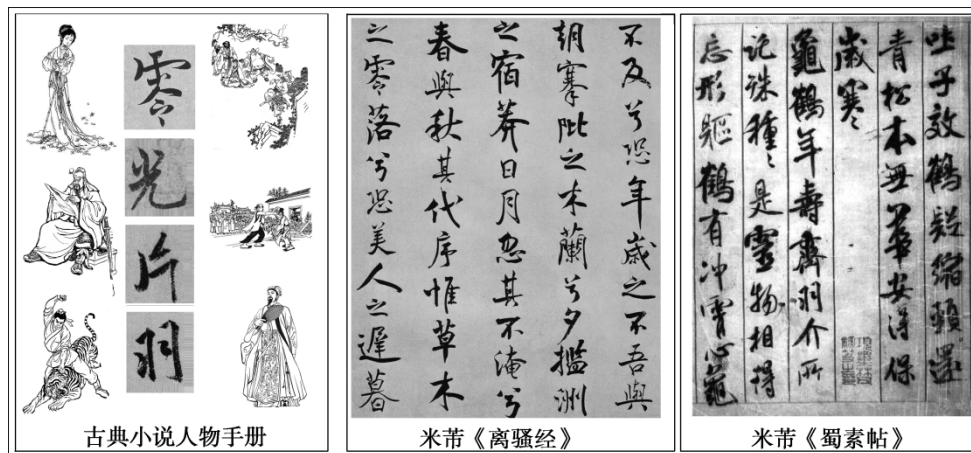 零
光
片
羽
古典小说人物手册
不及兮恐年歲之不吾與
朝搴阰之木蘭兮夕攬洲
之宿莽日月忽其不淹兮
春與秋其代序惟草木
之零落兮恐美人之遲暮
米芾《离骚经》
吐子效鶴疑縮頸還
青松本無華安得保
歲寒
龜鶴年壽齊羽介所
託殊種〻是靈物相得
忘形軀鶴有沖霄心龜
米芾《蜀素帖》